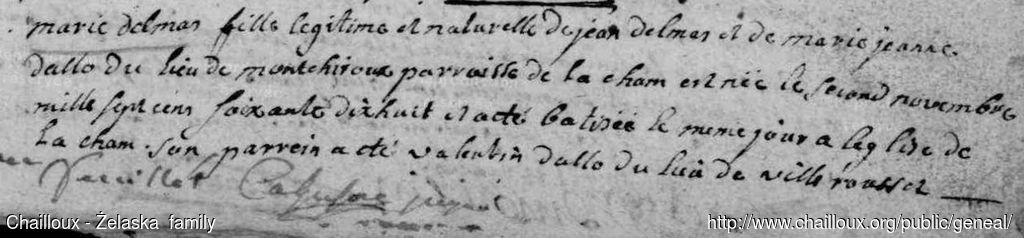 marie delmas fille legitime et naturelle de jean delmas et de marie jeanne
dallo du lieu de montchiroux parroisse de la cham est née le second novembre
mille sept cens soixante dixhuit et a eté batisée le meme jour a leglise de
la cham. son parrein a eté valentin dallo du lieu de ville rousset
Chailloux - Żelaska family
http://www.chailloux.org/public/geneal/